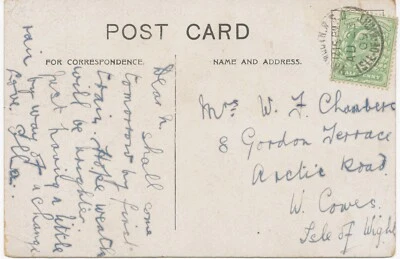 POST CARD
FOR CORRESPONDENCE.
NAME AND ADDRESS.
Dear M. shall come
tomorrow by first
train. Hope weather
will be brighter
Just having a little
rain by way of a change
Love.
Mrs W. J. Chambers
8 Gordon Terrace
Arctic Road
W. Cowes
Isle of Wight